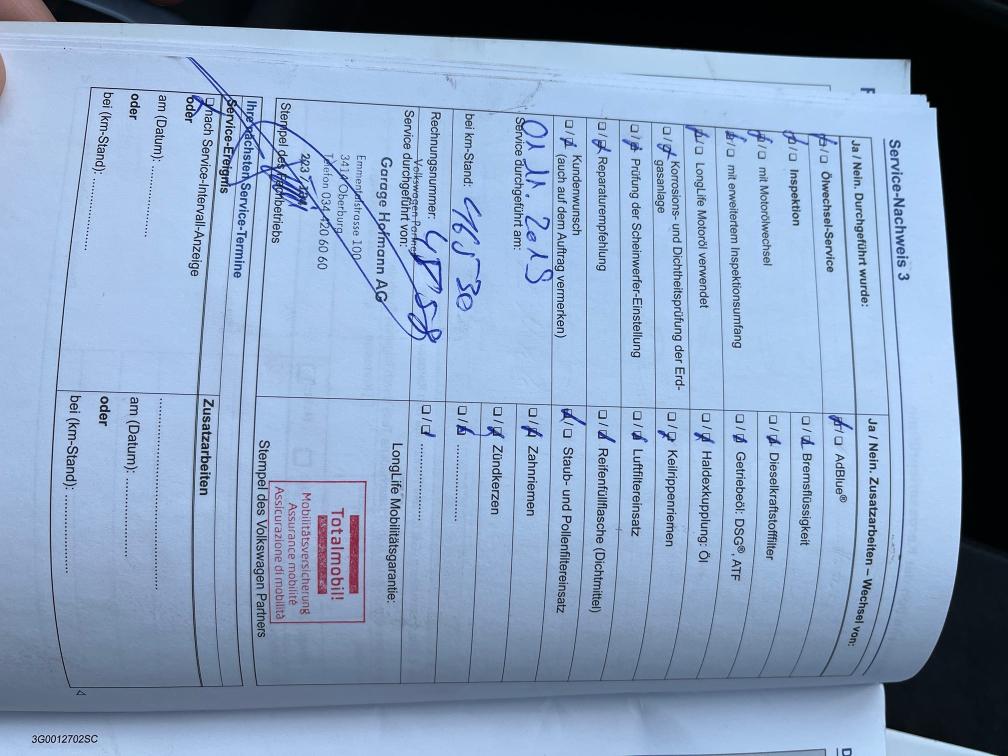 Service-Nachweis 3
Ja / Nein. Durchgeführt wurde:
☑/☐ Ölwechsel-Service
☑/☐ Inspektion
☑/☐ mit Motorölwechsel
☑/☐ mit erweitertem Inspektionsumfang
☑/☐ LongLife Motoröl verwendet
☐/☑ Korrosions- und Dichtheitsprüfung der Erd-
gasanlage
☐/☑ Prüfung der Scheinwerfer-Einstellung
☐/☑ Reparaturempfehlung
☐/☑ Kundenwunsch
(auch auf dem Auftrag vermerken)
Service durchgeführt am:
01.11.2019
bei km-Stand: 46530
Rechnungsnummer:
Service durchgeführt von:
Volkswagen Partner
Garage Hofmann AG
Emmentalstrasse 100
3414 Oberburg
Telefon 034 420 60 60
Stempel des Fachbetriebs
Ja / Nein. Zusatzarbeiten – Wechsel von:
☑/☐ AdBlue®
☐/☑ Bremsflüssigkeit
☐/☑ Dieselkraftstofffilter
☐/☑ Getriebeöl: DSG®, ATF
☐/☑ Haldexkupplung: Öl
☐/☑ Keilrippenriemen
☐/☑ Luftfiltereinsatz
☐/☑ Reifenfüllflasche (Dichtmittel)
☑/☐ Staub- und Pollenfiltereinsatz
☐/☑ Zahnriemen
☐/☑ Zündkerzen
☐/☑ ..............
☐/☑ ..............
LongLife Mobilitätsgarantie:
Totalmobil!
Mobilitätsversicherung
Assurance mobilité
Assicurazione di mobilità
Stempel des Volkswagen Partners
Ihre nächsten Service-Termine
Service-Ereignis
☐ nach Service-Intervall-Anzeige
oder
am (Datum): ..............
oder
bei (km-Stand): ..............
Zusatzarbeiten
..............
am (Datum): ..............
oder
bei (km-Stand): ..............
3G0012702SC